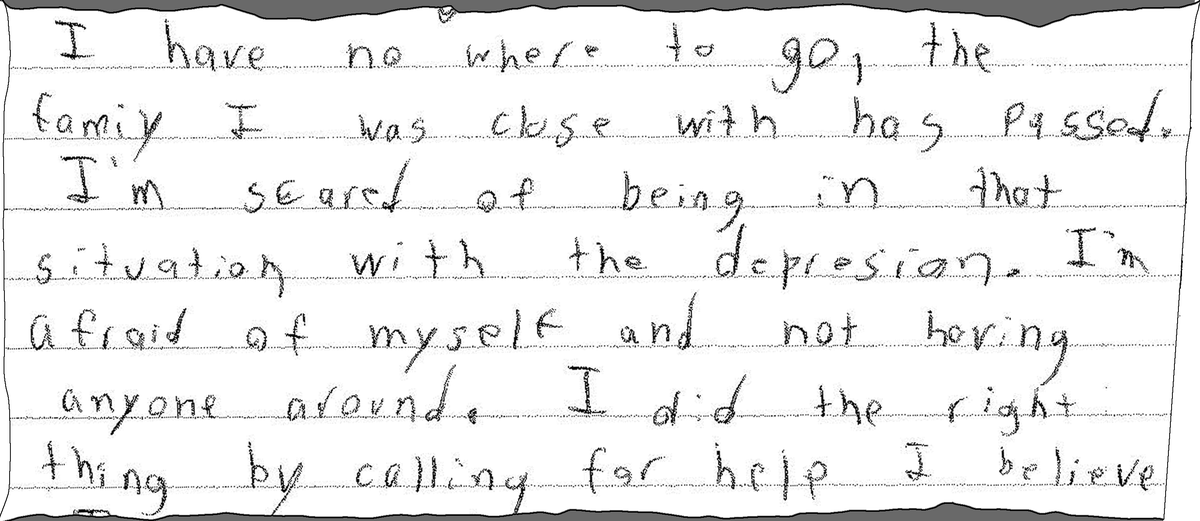 I have no where to go, the
famiy I was close with has passed.
I'm scared of being in that
situation with the depresion. I'm
afraid of myself and not having
anyone around. I did the right
thing by calling for help I believe